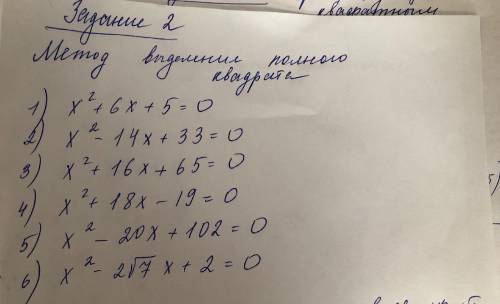 Задание 2
квадратным
Метод выделения полного
квадрата
1) x² + 6x + 5 = 0
2) x² - 14x + 33 = 0
3) x² + 16x + 65 = 0
4) x² + 18x - 19 = 0
5) x² - 20x + 102 = 0
6) x² - 2√7 x + 2 = 0